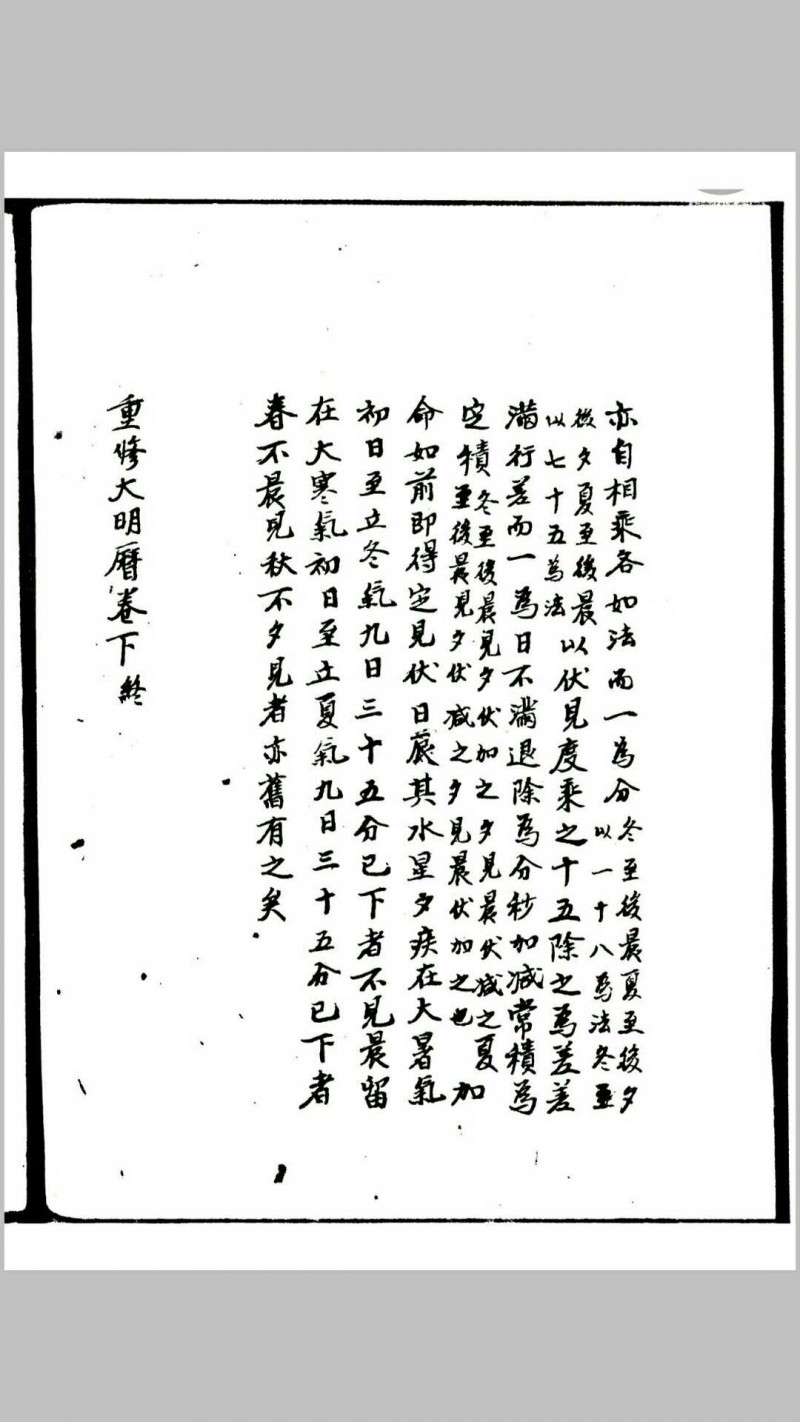 亦自相乘各如法而一為分冬至後晨夏至後夕以一十八為法冬至
後夕夏至後晨以七十五為法以伏見度乘之十五除之為差差
滿行差而一為日不滿退除為分秒加減常積為
定積冬至後晨見夕伏加之夕見晨伏減之夏至後晨見夕伏減之夕見晨伏加之也加
命如前即得定見伏日辰其水星夕疾在大暑氣
初日至立冬氣九日三十五分已下者不見晨留
在大寒氣初日至立夏氣九日三十五分已下者
春不晨見秋不夕見者亦舊有之矣
重修大明曆卷下終